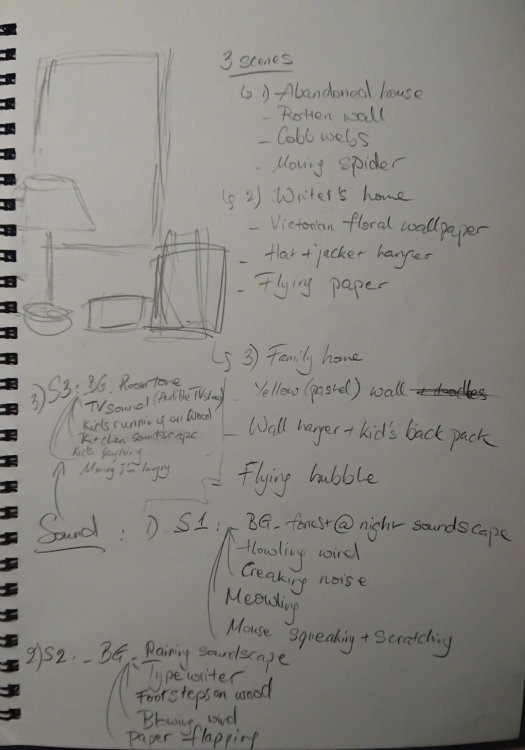 3 scenes
↳ 1) Abandoned house
- Rotten wall
- Cobb webs
- Moving spider
↳ 2) Writer's home
- Victorian floral wallpaper
- Hat + jacker hanger
- Flying paper
↳ 3) Family home
- Yellow (pastel) wall + doodles
- Wall hanger + kid's back pack
- Flying bubble
3) S3: BG. Roomtone
TV sound (Audible TV show)
Kids running on wood
Kitchen soundscape
Kids laughing
I'm hungry
Sound : 1) S1 : - BG - forest @ night soundscape
Howling wind
Creaking noise
Meowling
Mouse squeaking + scratching
2) S2: - BG - Rainy soundscape
Typewriter
Footsteps on wood
Blowing wind
paper flapping